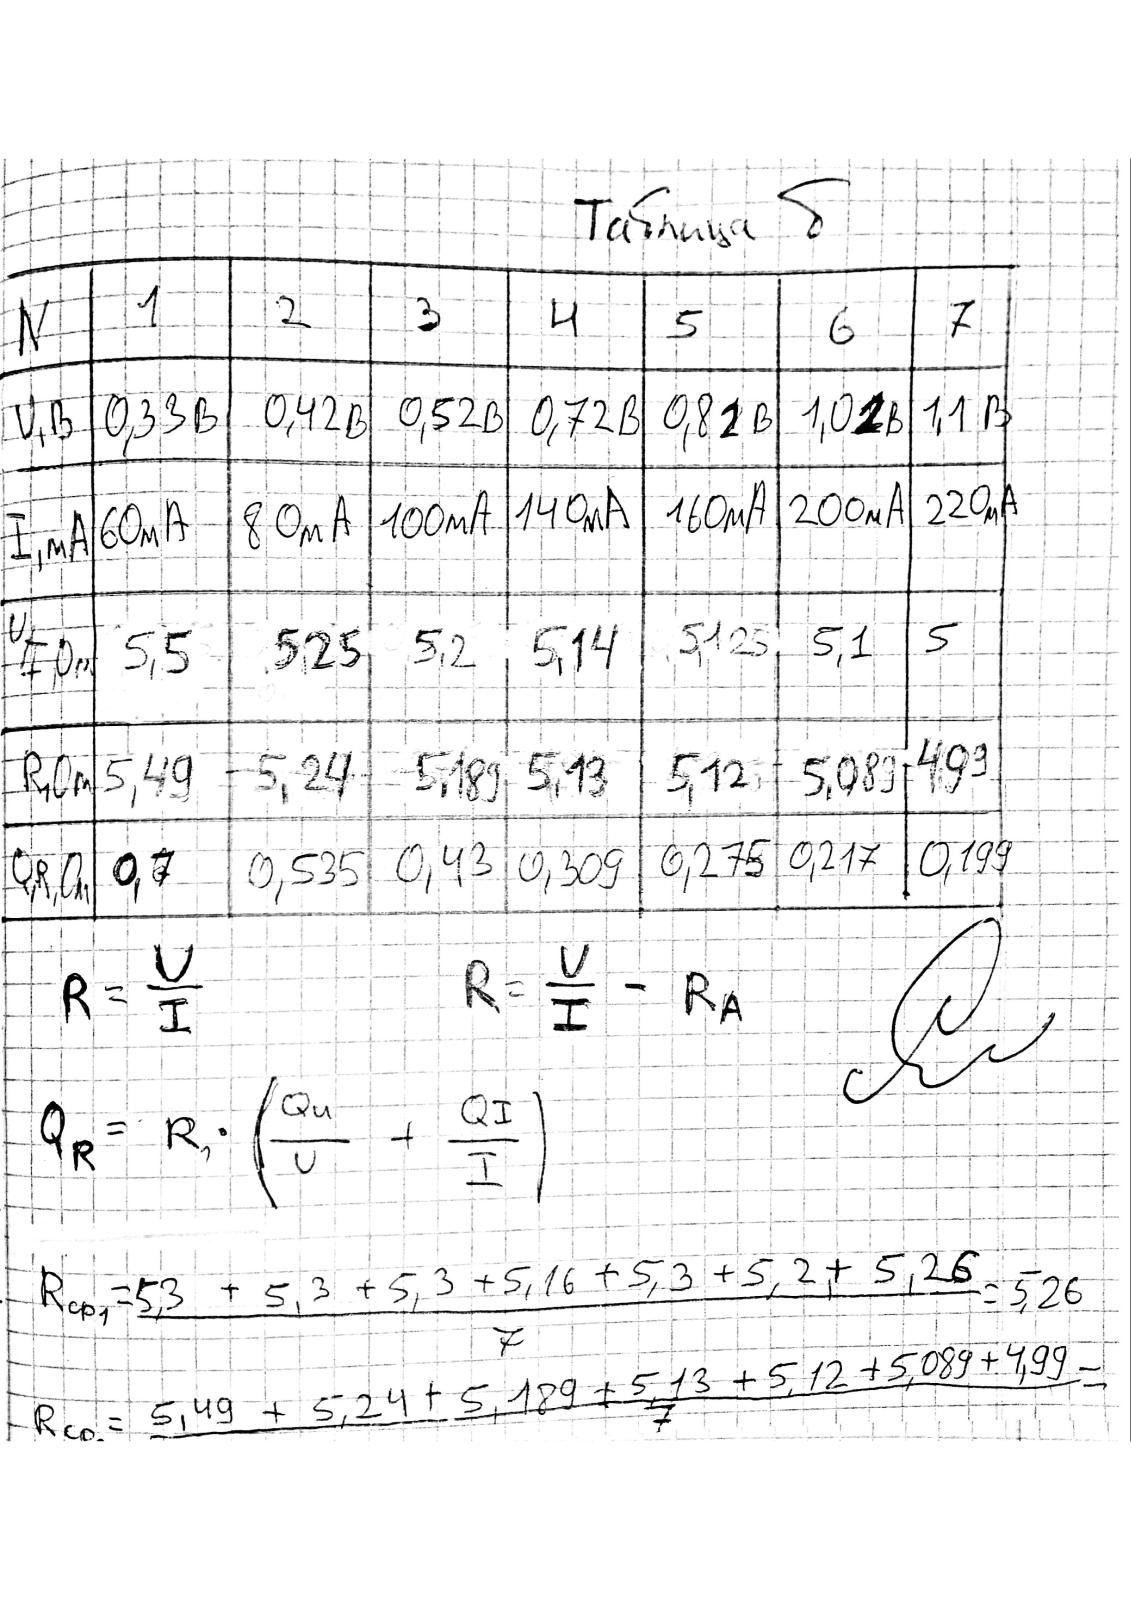 Таблица б
N 1 2 3 4 5 6 7
U,В 0,33В 0,42В 0,52В 0,72В 0,82В 1,02В 1,1В
I,мА 60мА 80мА 100мА 140мА 160мА 200мА 220мА
U/I,Ом 5,5 5,25 5,2 5,14 5,125 5,1 5
R,Ом 5,49 5,24 5,189 5,13 5,12 5,089 4,99
QR,Ом 0,7 0,535 0,43 0,309 0,275 0,217 0,199
R = U/I R = U/I - RA
QR = R, · (Qu/U + QI/I)
Rср1 = 5,3 + 5,3 + 5,3 + 5,16 + 5,3 + 5,2 + 5,26 / 7 = 5,26
Rср. = 5,49 + 5,24 + 5,189 + 5,13 + 5,12 + 5,089 + 4,99 / 7 =